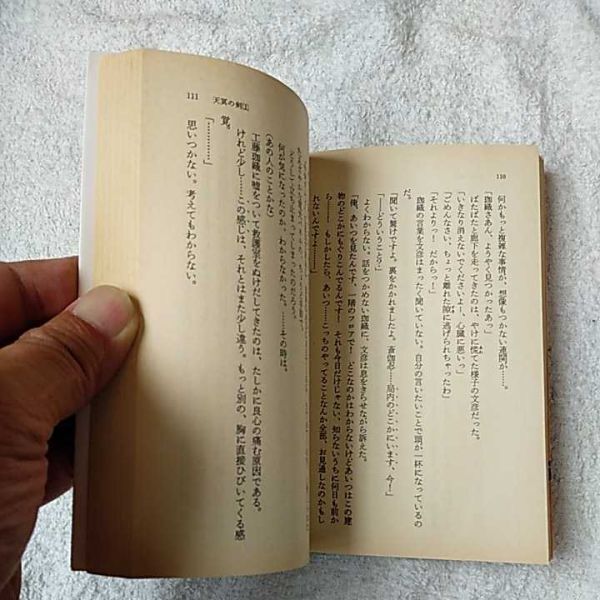 110
何かもっと複雑な事情が、想像もつかない連関が……。
「珈蔵さあん、ようやく見つかったあっ」
ばたばたと廊下を走ってきたのは、やけに慌てた様子の文彦だった。
「いきなり消えないでくださいよー、心臓に悪いっ」
「ごめんなさい、ちょっと離れた隙に逃げられちゃったわ」
「それより！　だからっー！」
珈蔵の言葉を文彦はまったく聞いていない。自分の言いたいことで頭が一杯になっているの
だ。
「聞いて驚けですよ。裏をかかれましたよ。蒼伽忍……局内のどこかにいます、今！」
「――どういうこと？」
よくわからない。話をつかめない珈蔵に、文彦は息をきらせながら訴えた。
「俺、あいつを見たんです、一階のフロアで！　どこなのかはわからないけどあいつはこの建
物のどこかにもぐりこんでるんです！　それも今日だけじゃない、知らないうちに何日も前か
ら……！　もしかしたら、あいつ……こっちのやってることなんか全部、お見通しなのかもし
れないんですよ――！」
111　天冥の剣①
何が気になったのか、わからなかった。――この時は。
（あの人のことかな）
工藤珈蔵に嘘をついて救護室をぬけだしてきたのは、たしかに良心の痛む原因である。
けれど少し……この感じは、それとはまた少し違う。もっと別の、胸に直接ひびいてくる感
覚。
「…………」
思いつかない。考えてもわからない。